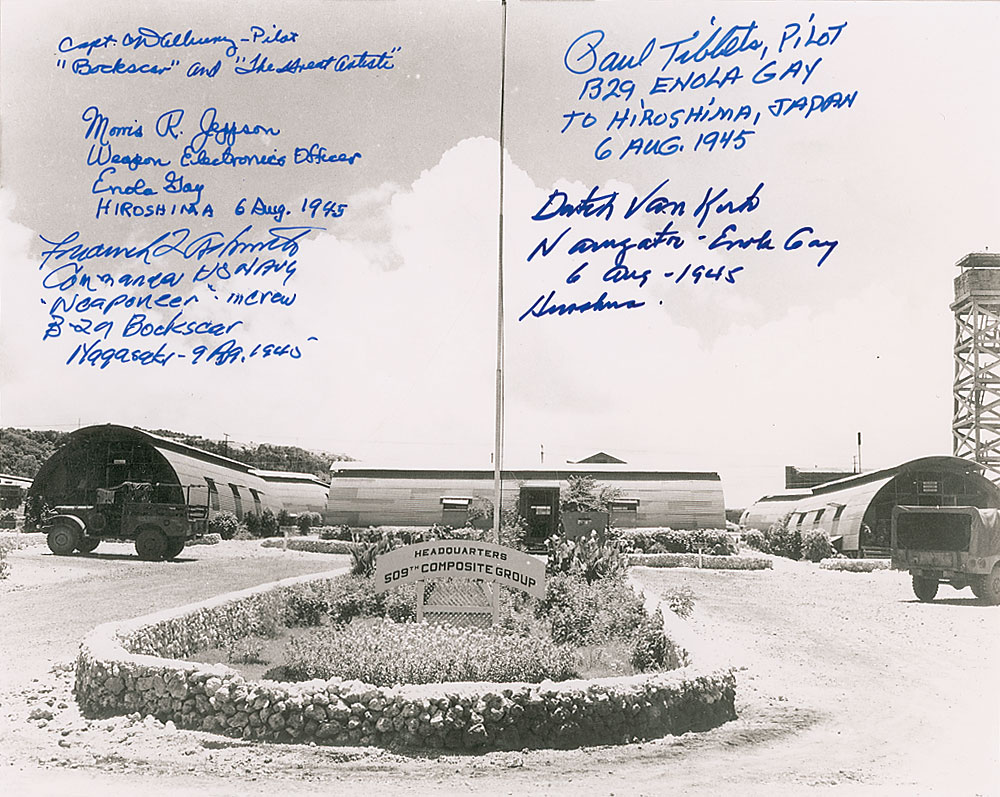 Capt. Don Albury - Pilot
"Bockscar" and "The Great Artiste"
Morris R. Jeppson
Weapon Electronics Officer
Enola Gay
HIROSHIMA 6 Aug. 1945
Frederick L Ashworth
Commander US NAVY
"Weaponeer" in crew
B-29 Bockscar
Nagasaki - 9 Ag. 1945
Paul Tibbets, PILOT
B29 ENOLA GAY
TO HIROSHIMA, JAPAN
6 AUG. 1945
Dutch Van Kirk
Navigator - Enola Gay
6 Aug - 1945
Hiroshima.
HEADQUARTERS
509TH COMPOSITE GROUP